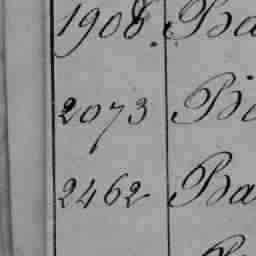 1908. Ba
2073 Bi
2462 Ba